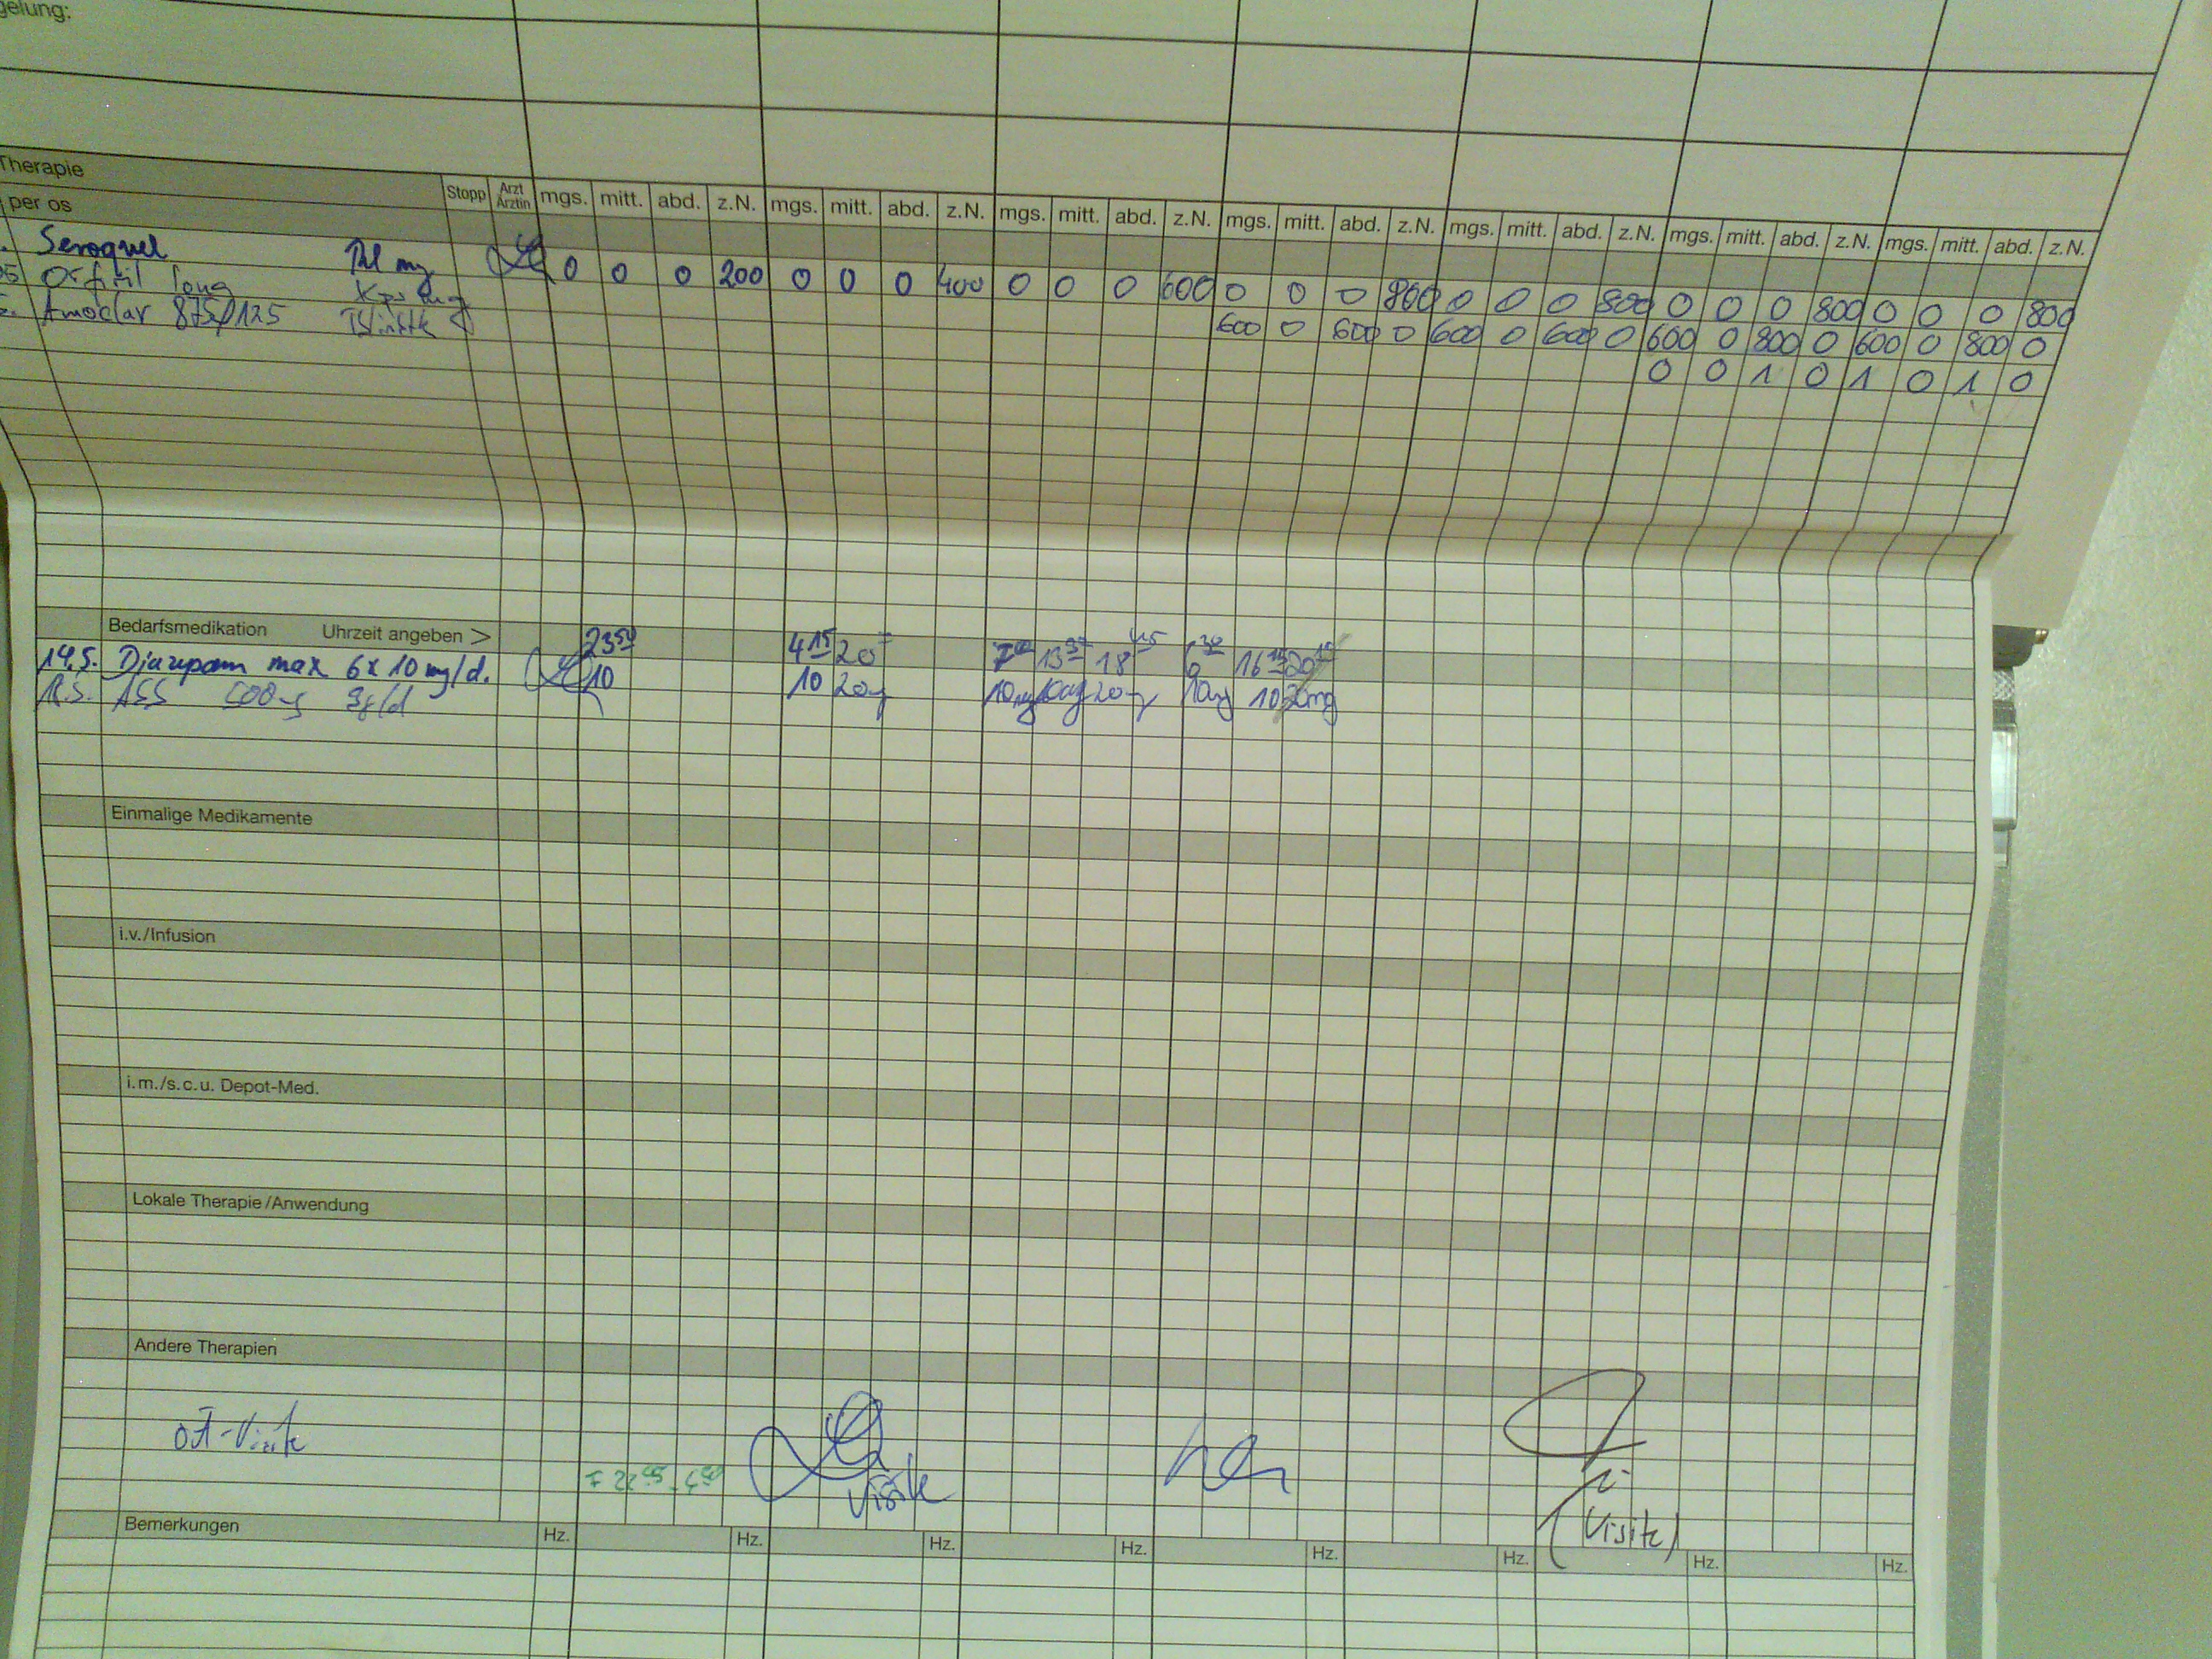 gelung:
Therapie
per os
Stopp Arzt Ärztin mgs. mitt. abd. z.N. mgs. mitt. abd. z.N. mgs. mitt. abd. z.N. mgs. mitt. abd. z.N. mgs. mitt. abd. z.N. mgs. mitt. abd. z.N. mgs. mitt. abd. z.N.
Seroquel Tbl mg 0 0 0 200 0 0 0 400 0 0 0 600 0 0 0 800 0 0 0 800 0 0 0 800 0 0 0 800
Orfiril long Kps mg 600 0 600 0 600 0 600 0 600 0 800 0 600 0 800 0
Amoclav 875/125 0 0 1 0 1 0 1 0
Bedarfsmedikation Uhrzeit angeben > 23 4 15 20 13 18 45 6 30 16 15 20
14.5. Diazepam max 6x10mg/d. 10 10 20mg 10mg 10mg 20mg 10mg 10 20mg
ASS 500mg 3g/d
Einmalige Medikamente
i.v./Infusion
i.m./s.c.u. Depot-Med.
Lokale Therapie/Anwendung
Andere Therapien
OA-Visite
Visite
(Visite)
Bemerkungen Hz. Hz. Hz. Hz. Hz. Hz. Hz. Hz.